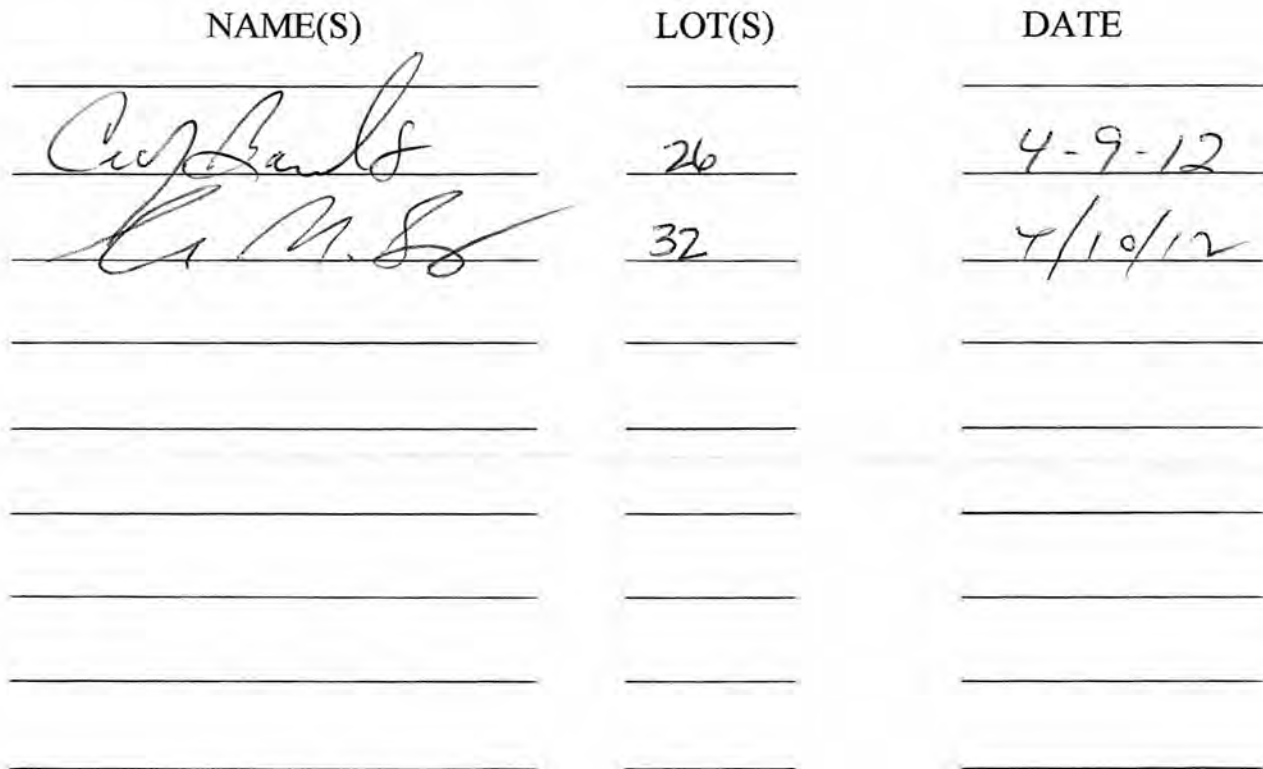 NAME(S) LOT(S) DATE
26 4-9-12
M. 32 4/10/12